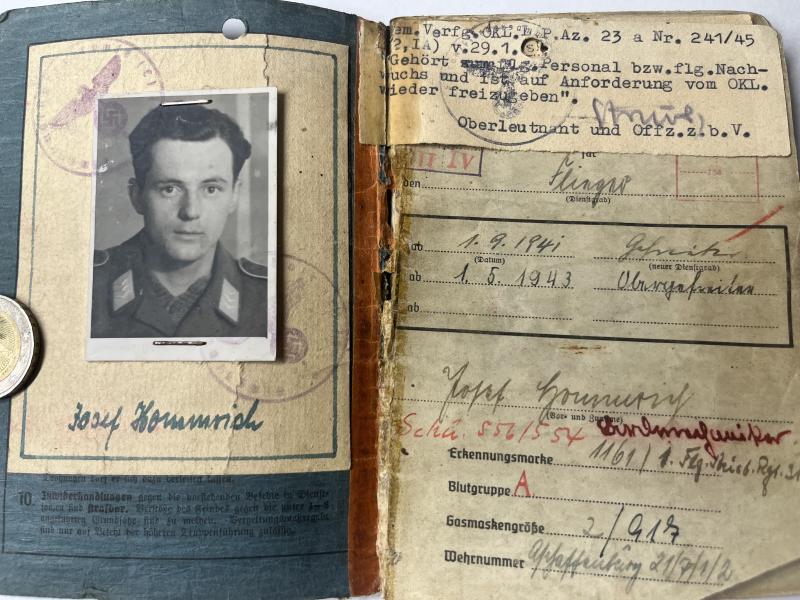 Josef Hommrich
Drohungen darf er sich dazu verleiten lassen.
10. Zuwiderhandlungen gegen die vorstehenden Befehle in Dienst-
sind strafbar. Verstöße des Feindes gegen die unter 1–8
angeführten Grundsätze sind zu melden. Vergeltungsmaßregeln
sind nur auf Befehl der höheren Truppenführung zulässig.
em.Verfg.OKL. P.Az. 23 a Nr. 241/45
?,IA) v.29.1.
"Gehört flg.Personal bzw.flg.Nach-
wuchs und ist auf Anforderung vom OKL.
wieder freizugeben".
Oberleutnant und Offz.z.b.V.
IV
für
den Flieger
(Dienstgrad)
ab 1.9.1941 Gefreiter
(Datum) (neuer Dienstgrad)
ab 1.5.1943 Obergefreiten
ab
Josef Hommrich
(Vor- und Zuname)
Schü. 556/5 54
Erkennungsmarke 1161/1. Flg. Rgt.
Blutgruppe A
Gasmaskengröße 2/
Wehrnummer Aschaffenburg 21/ /1/2